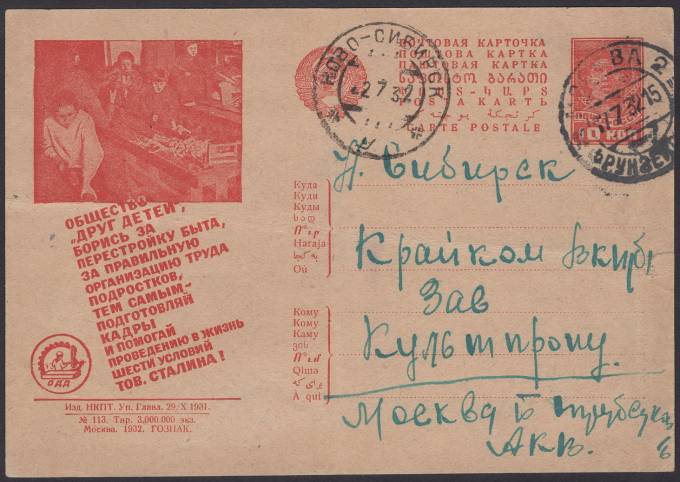 ОБЩЕСТВО
„ДРУГ ДЕТЕЙ",
БОРИСЬ ЗА
ПЕРЕСТРОЙКУ БЫТА,
ЗА ПРАВИЛЬНУЮ
ОРГАНИЗАЦИЮ ТРУДА
ПОДРОСТКОВ,
ТЕМ САМЫМ—
ПОДГОТОВЛЯЙ
КАДРЫ
И ПОМОГАЙ
ПРОВЕДЕНИЮ В ЖИЗНЬ
ШЕСТИ УСЛОВИЙ
ТОВ. СТАЛИНА!
ОДД
Изд. НКПТ. Уп. Главл. 29/X 1931.
№ 113. Тир. 3.000.000 экз.
Москва. 1932. ГОЗНАК.
ПОЧТОВАЯ КАРТОЧКА
ПОШТОВА КАРТКА
ПАШТОВАЯ КАРТКА
POSTA KARTЬ
CARTE POSTALE
НОВО-СИБИРСК
2.7.32
10 КОП.
Куда
Куди
Куды
Haraja
Où
Кому
Кому
Каму
Qima
À qui
Н. Сибирск
Крайком
Зав
Культпропу
Москва